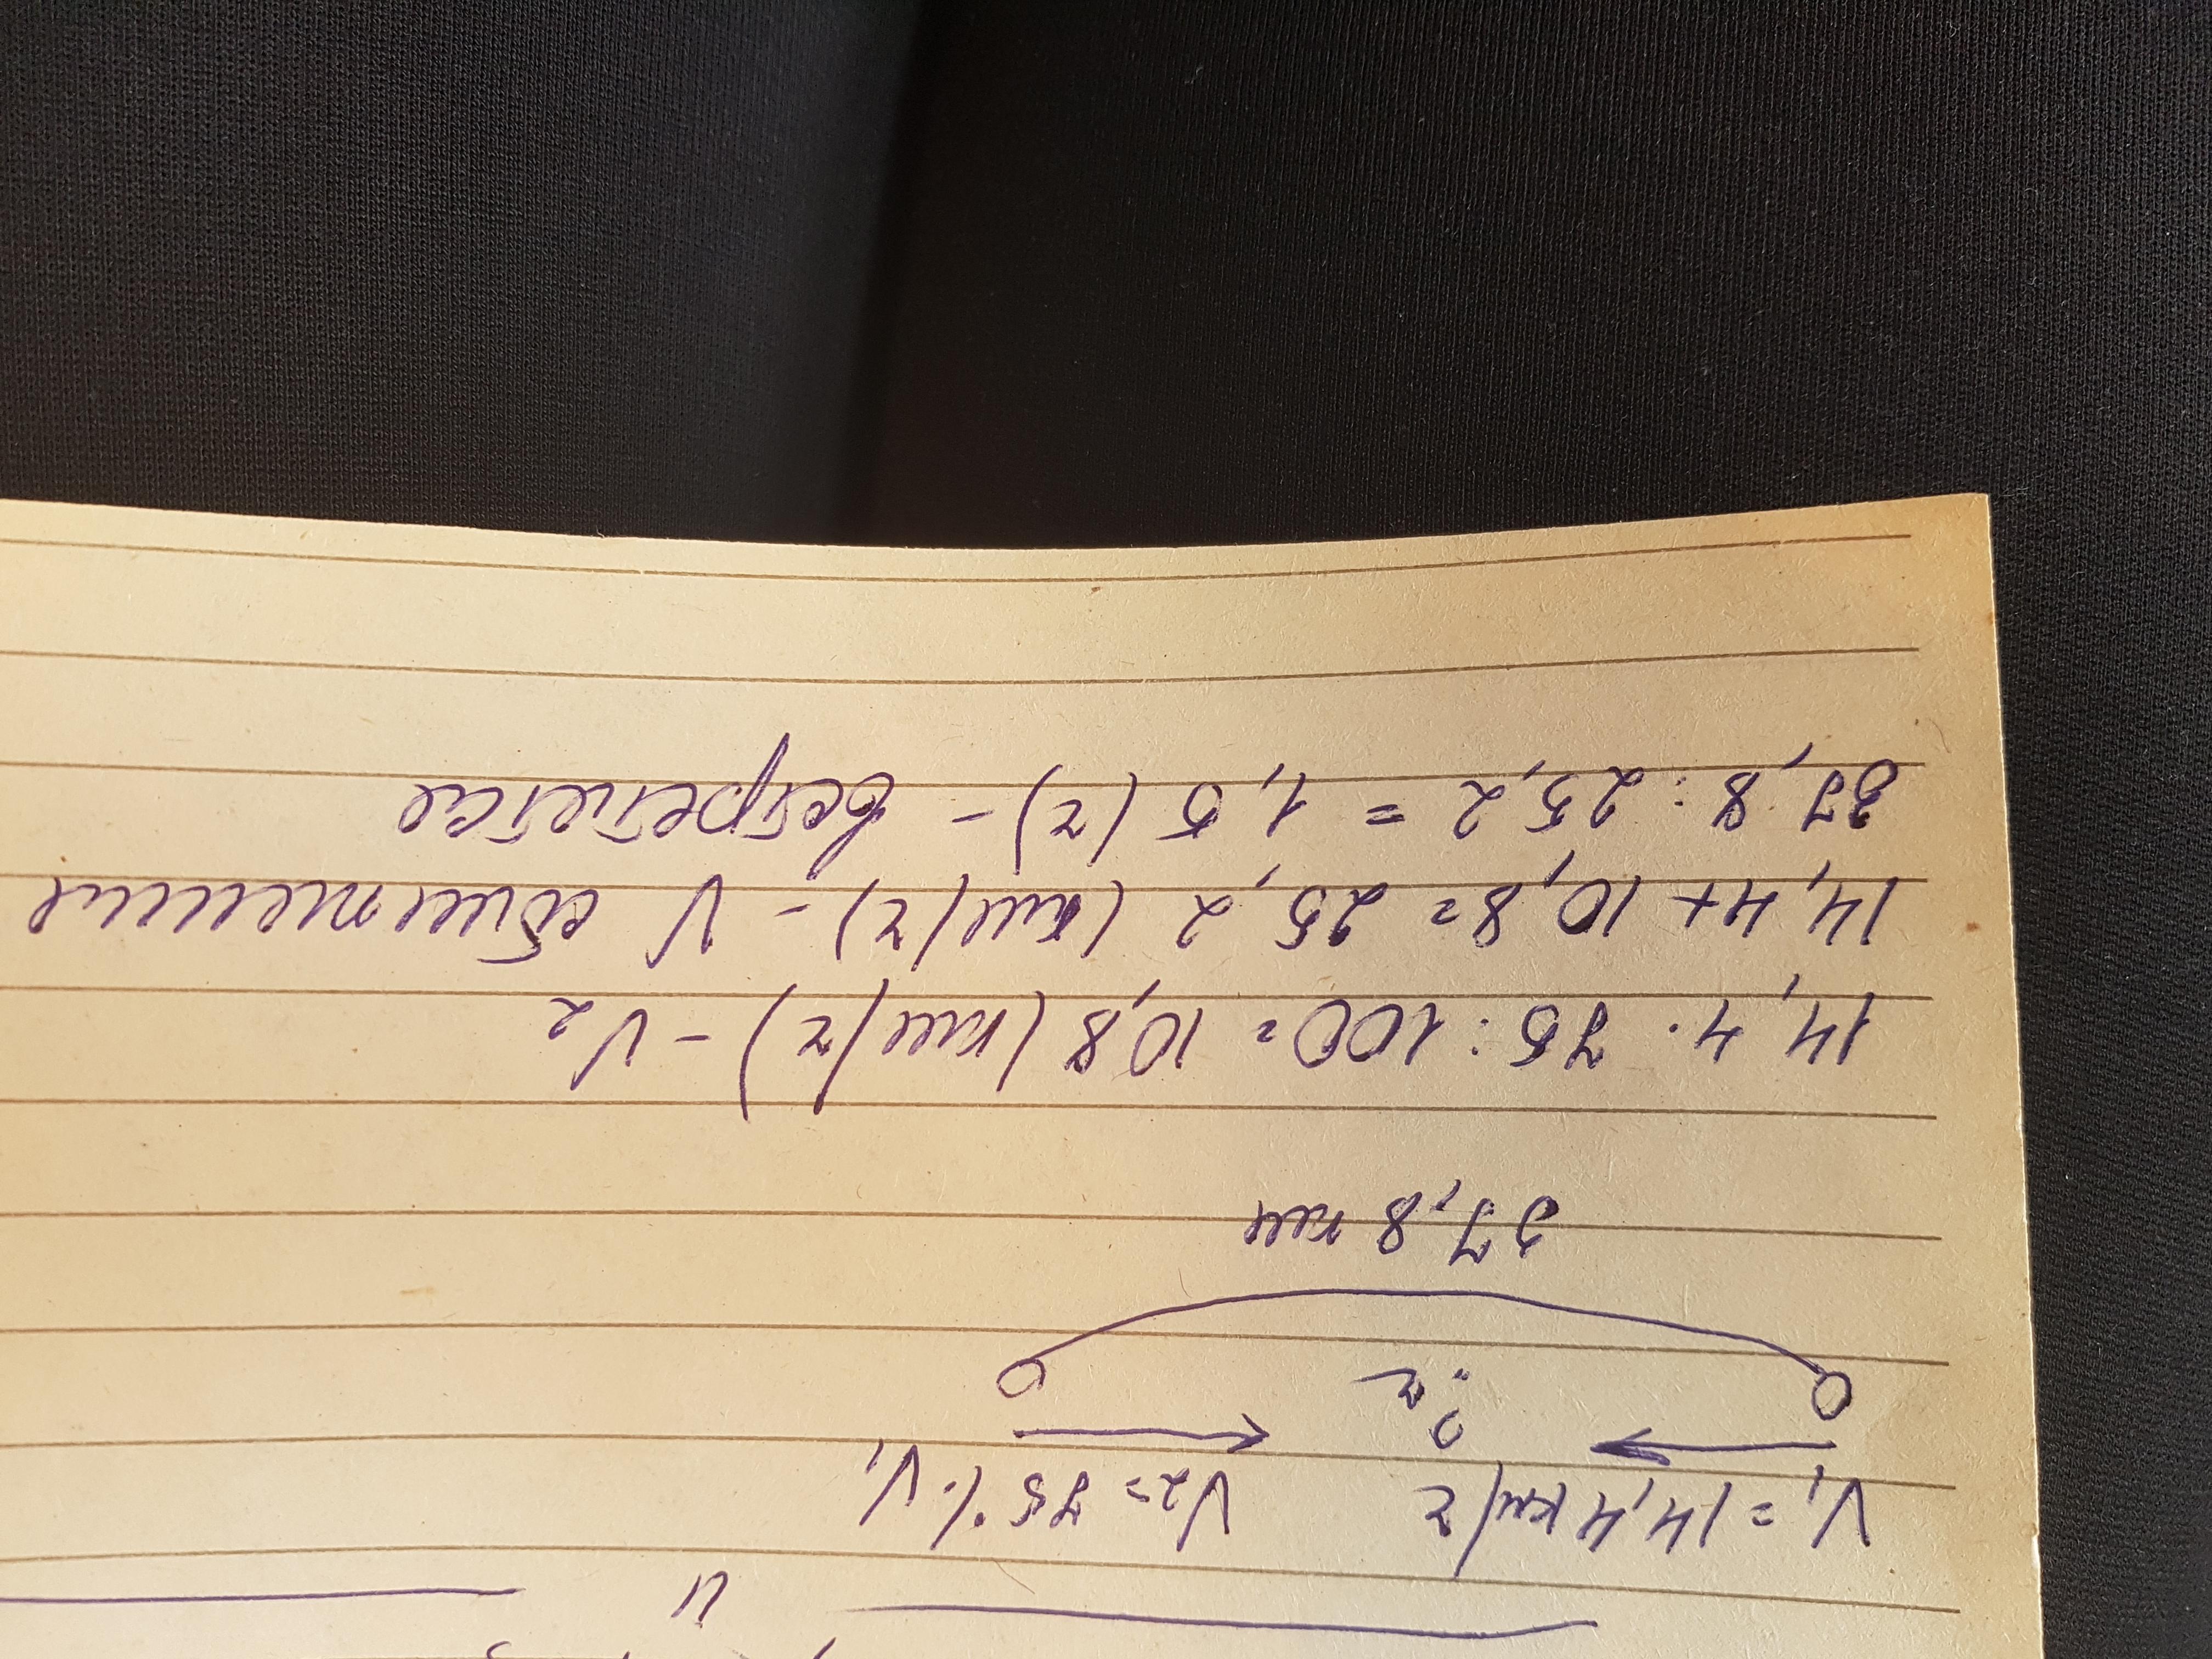 V₁ = 14,4 км/г V₂ = 75% V₁
? г
37,8 км
14,4 · 75 : 100 = 10,8 (км/г) – V₂
14,4 + 10,8 = 25,2 (км/г) – V сближения
37,8 : 25,2 = 1,5 (г) – встретятся